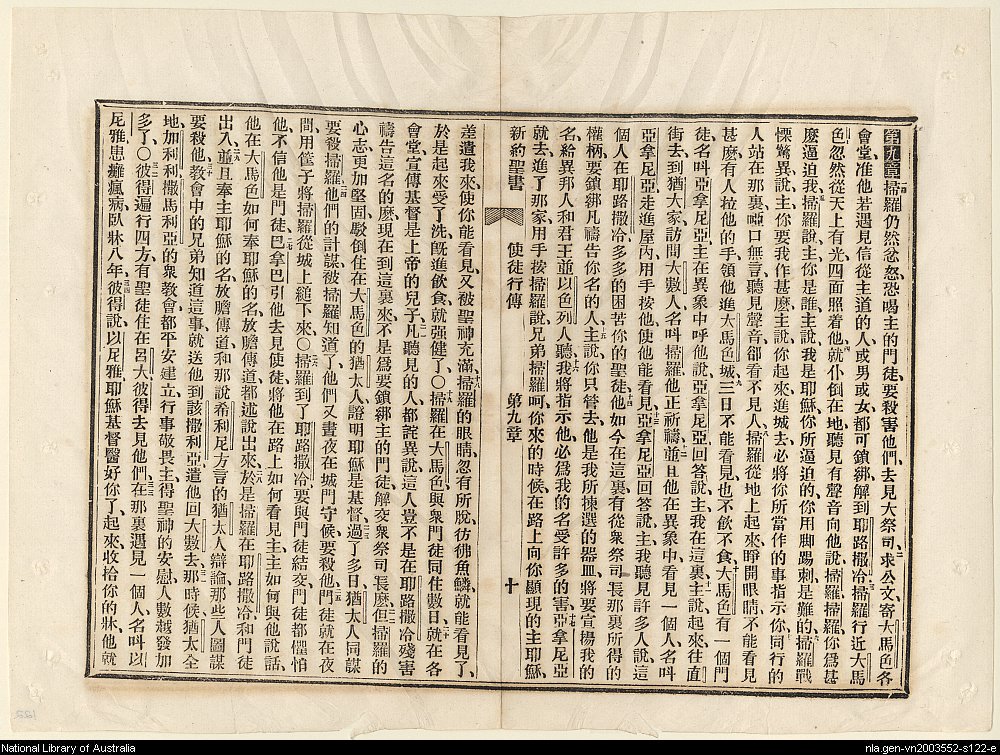 第九章一掃羅仍然忿怒恐喝主的門徒、要殺害他們、去見大祭司、二求公文寄大馬色各
會堂、准他若遇見信從主道的人、或男或女、都可鎖綁解到耶路撒冷、三掃羅行近大馬
色、忽然從天上有光、四面照着他、四就仆倒在地、聽見有聲音向他說、掃羅掃羅、你爲甚
麽逼迫我、五掃羅說、主你是誰、主說、我是耶穌、你所逼迫的、你用脚踢刺是難的、六掃羅戰
慄驚異說、主你要我作甚麽、主說、你起來、進城去、必將你所當作的事指示你、七同行的
人站在那裏、啞口無言、聽見聲音、卻看不見人、八掃羅從地上起來、睜開眼睛、不能看見
甚麽、有人拉他的手、領他進大馬色城、九三日不能看見、也不飲不食、十大馬色有一個門
徒、名叫亞拿尼亞、主在異象中呼他說、亞拿尼亞、回答說、主我在這裏、十一主說、起來往直
街去、到猶大家、訪問大數人名叫掃羅、他正祈禱、十二並且他在異象中、看見一個人名叫
亞拿尼亞、走進屋內、用手按他、使他能看見、十三亞拿尼亞回答說、主我聽見許多人說、這
個人在耶路撒冷、多多的困苦你的聖徒、十四他如今在這裏、有從衆祭司長那裏所得的
權柄、要鎖綁凡禱告你名的人、十五主說、你只管去、他是我所揀選的器皿、將要宣揚我的
名、給異邦人和君王、並以色列人聽、十六我將指示他、必爲我的名受許多的害、十七亞拿尼亞
就去進了那家、用手按掃羅說、兄弟掃羅呵、你來的時候、在路上向你顯現的主耶穌、
新約聖書　使徒行傳　第九章　十
差遣我來、使你能看見、又被聖神充滿、十八掃羅的眼睛、忽有所脫、彷彿魚鱗、就能看見了、
於是起來受了洗、十九旣進飲食、就强健了、〇掃羅在大馬色、與衆門徒同住數日、二十就在各
會堂、宣傳基督是上帝的兒子、二一凡聽見的人、都詫異說、這人豈不是在耶路撒冷殘害
禱告這名的麽、現在到這裏來、不是爲要鎖綁主的門徒、解交衆祭司長麽、二二但掃羅的
心志更加堅固、駁倒住在大馬色的猶太人、證明耶穌是基督、二三過了多日、猶太人同謀
要殺掃羅、二四他們的計謀、被掃羅知道了、他們又晝夜在城門守候要殺他、二五門徒就在夜
間用筐子將掃羅從城上縋下來、〇二六掃羅到了耶路撒冷、要與門徒結交、門徒都懼怕
他、不信他是門徒、二七巴拿巴引他去見使徒、將他在路上如何看見主、主如何與他說話、
他在大馬色如何奉耶穌的名、放膽傳道、都述說出來、二八於是掃羅在耶路撒冷、和門徒
出入、二九並且奉主耶穌的名、放膽傳道、和那說希利尼方言的猶太人辯論、那些人圖謀
要殺他、三十教會中的兄弟知道這事、就送他到該撒利亞、遣他回大數去、三一那時候猶太全
地、加利利、撒馬利亞的衆教會、都平安建立、行事敬畏主、得聖神的安慰、人數越發加
多了、〇三二彼得遍行四方、有聖徒住在呂大、彼得去見他們、三三在那裏遇見一個人、名叫以
尼雅、患癱瘋病、臥牀八年、三四彼得說、以尼雅、耶穌基督醫好你了、起來、收拾你的牀、他就
National Library of Australia
nla.gen-vn2003552-s122-e